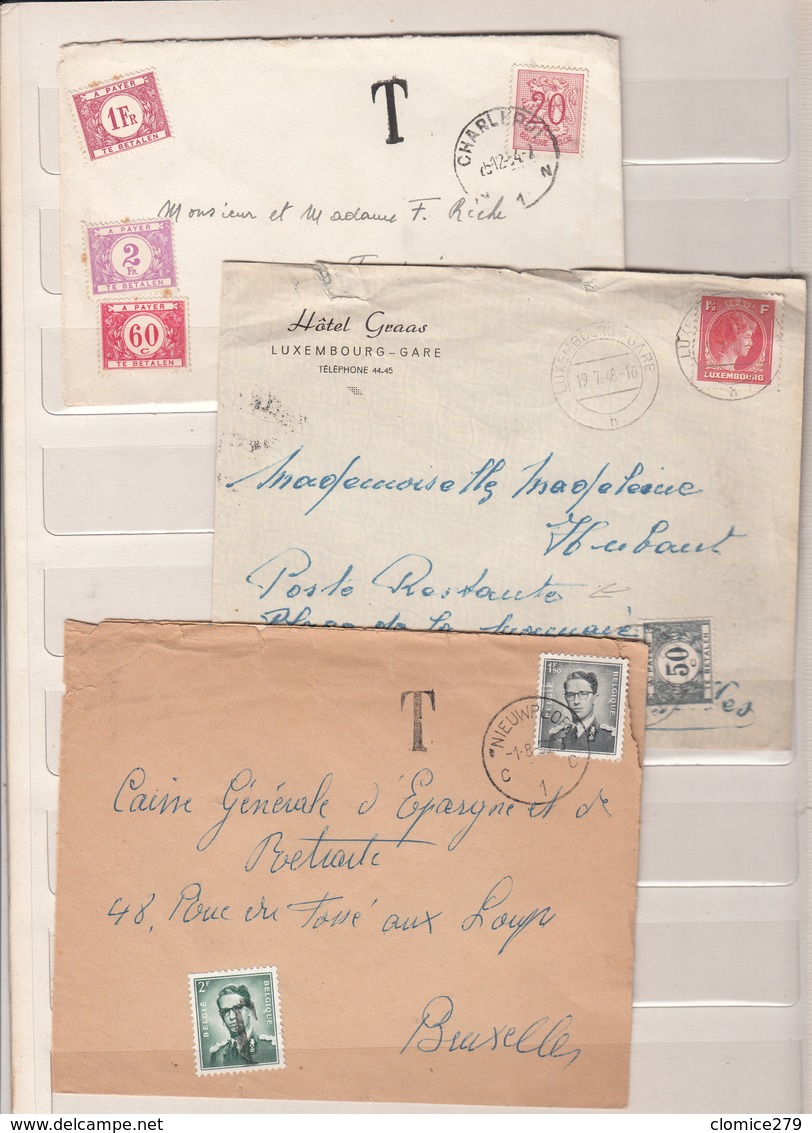 A PAYER
1 FR
TE BETALEN
T
20
BELGIQUE
CHARLEROI
-12-54-
N
1
Monsieur et Madame F. Riche
A PAYER
2
FR
TE BETALEN
A PAYER
60
C
TE BETALEN
Hôtel Graas
LUXEMBOURG-GARE
TÉLÉPHONE 44-45
LUXEMBOURG-GARE
19.7.48-16
n
1½ F
LUXEMBOURG
n
Mademoiselle Madeleine
Hubaut
Poste Restante
Place de la Monnaie
A PAYER
50
C
TE BETALEN
T
1F50
BELGIË BELGIQUE
NIEUWPOORT
-1-8-
C 1 C
Caisse Générale d'Epargne et de
Retraite
48, Rue du Fossé aux Loups
2F
BELGIË BELGIQUE
T
Bruxelles
delcampe.net
clomice279